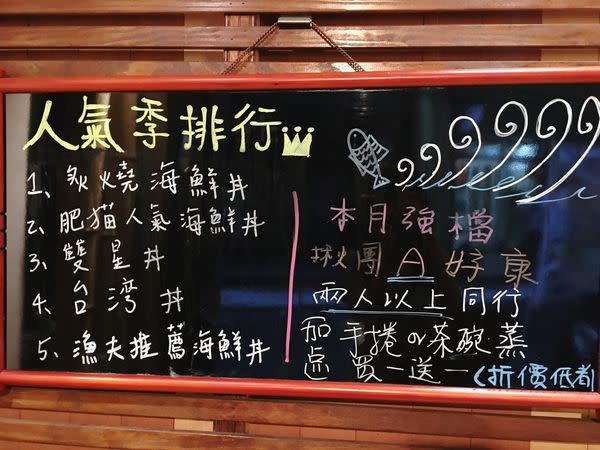 人氣季排行
1、炙燒海鮮丼
2、肥猫人氣海鮮丼
3、雙星丼
4、台湾丼
5、漁夫推薦海鮮丼
本月強檔
揪團A好康
兩人以上同行
加点 手捲or茶碗蒸
買一送一(折價低者